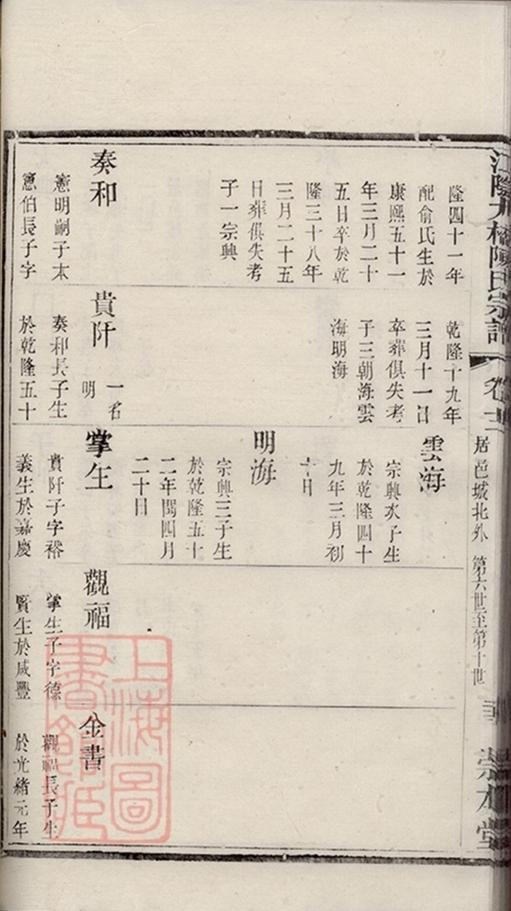 居邑城北外
第六世至第十世
崇本堂
隆四十一年
配俞氏生於
康熙五十一
年三月二十
五日卒於乾
隆三十八年
三月二十五
日葬俱失考
子一宗興
奏和
憲明嗣子太
憲伯長子字
乾隆十九年
三月十一日
卒葬俱失考
子三朝海雲
海明海
貴阡
一名
明
奏和長子生
於乾隆五十
雲海
宗興次子生
於乾隆四十
九年三月初
十日
明海
宗興三子生
於乾隆五十
二年閏四月
二十日
掌生
貴阡子字裕
義生於嘉慶
觀福
掌生子字德
賢生於咸豐
金書
觀福長子生
於光緒元年
上海圖
書館藏